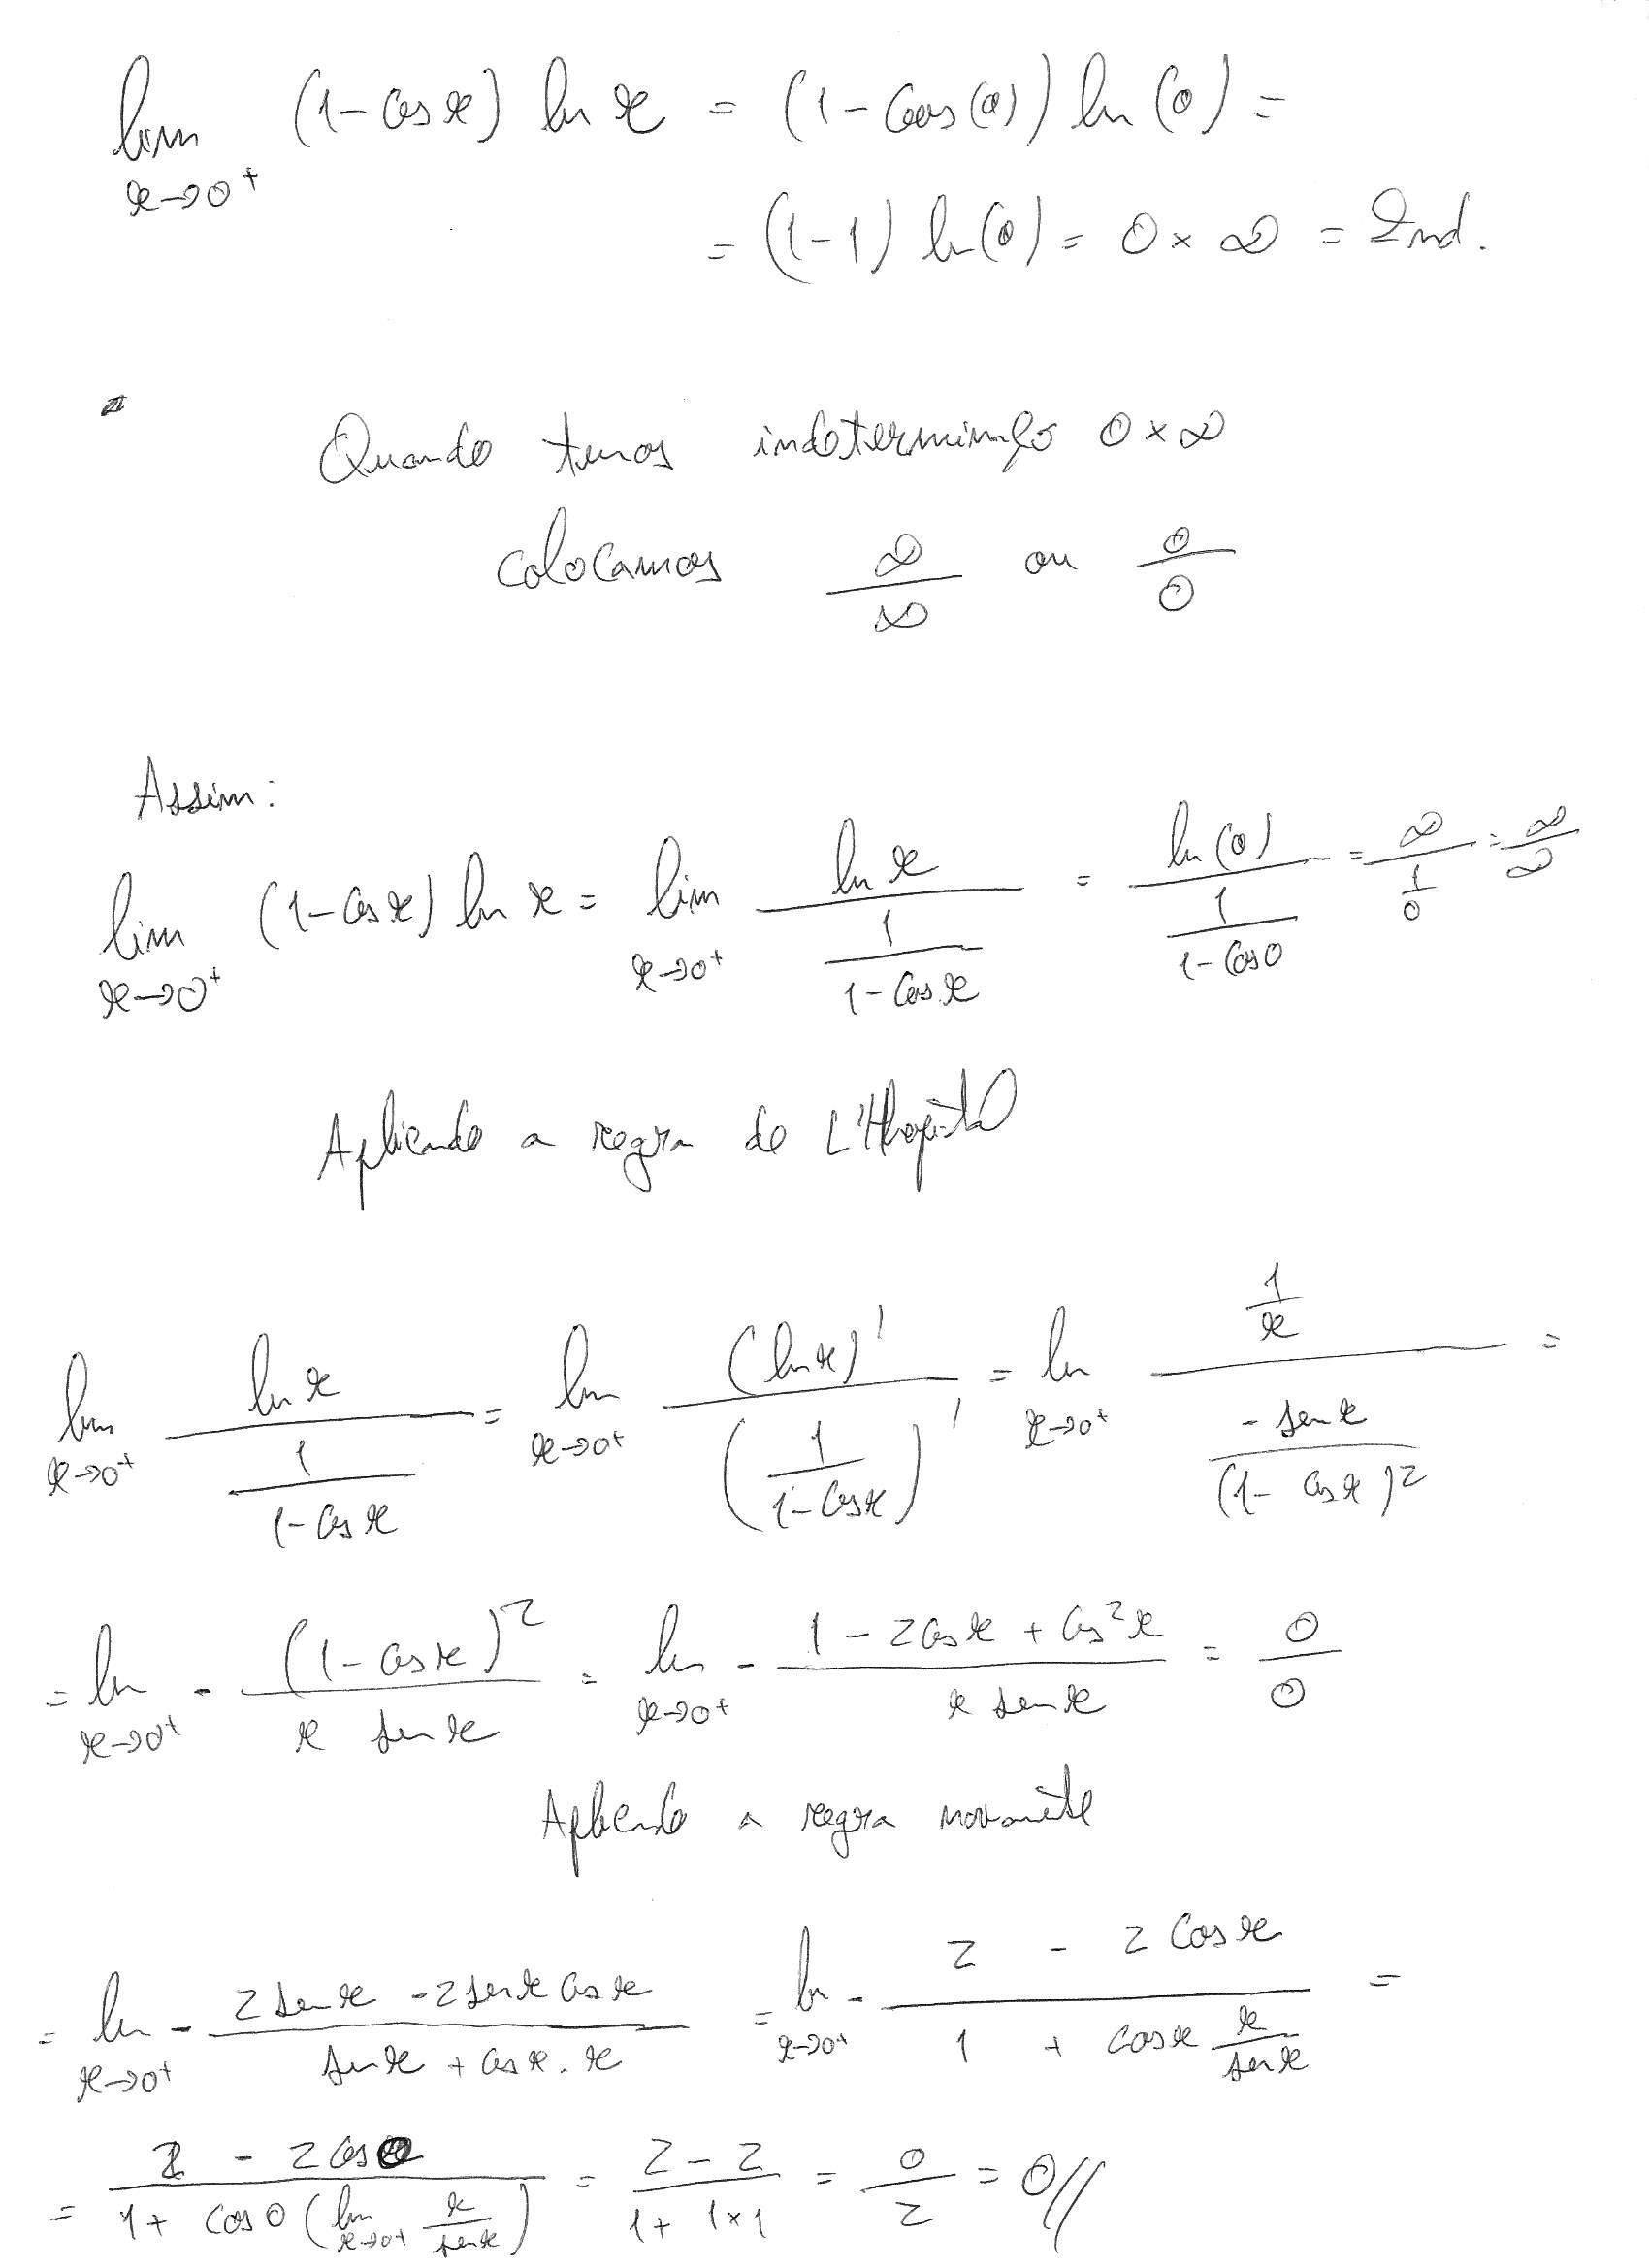 lim x→0⁺ (1-cos x) ln x = (1-cos(0)) ln(0) =
= (1-1) ln(0) = 0 × ∞ = Ind.
Quando temos indeterminação 0 × ∞
colocamos ∞/∞ ou 0/0
Assim:
lim x→0⁺ (1-cos x) ln x = lim x→0⁺ ln x / (1/(1-cos x)) = ln(0) / (1/(1-cos 0)) = ∞/(1/0) = ∞/∞
Aplicando a regra de L'Hospital
lim x→0⁺ ln x / (1/(1-cos x)) = lim x→0⁺ (ln x)' / (1/(1-cos x))' = lim x→0⁺ (1/x) / (-sen x/(1-cos x)²) =
= lim x→0⁺ - (1-cos x)² / (x sen x) = lim x→0⁺ - (1-2cos x + cos² x) / (x sen x) = 0/0
Aplicando a regra novamente
= lim x→0⁺ - (2 sen x - 2 sen x cos x) / (sen x + cos x . x) = lim x→0⁺ - (2 - 2 cos x) / (1 + cos x x/sen x) =
= (2 - 2 cos 0) / (1 + cos 0 (lim x→0⁺ x/sen x)) = (2-2)/(1+1×1) = 0/2 = 0//